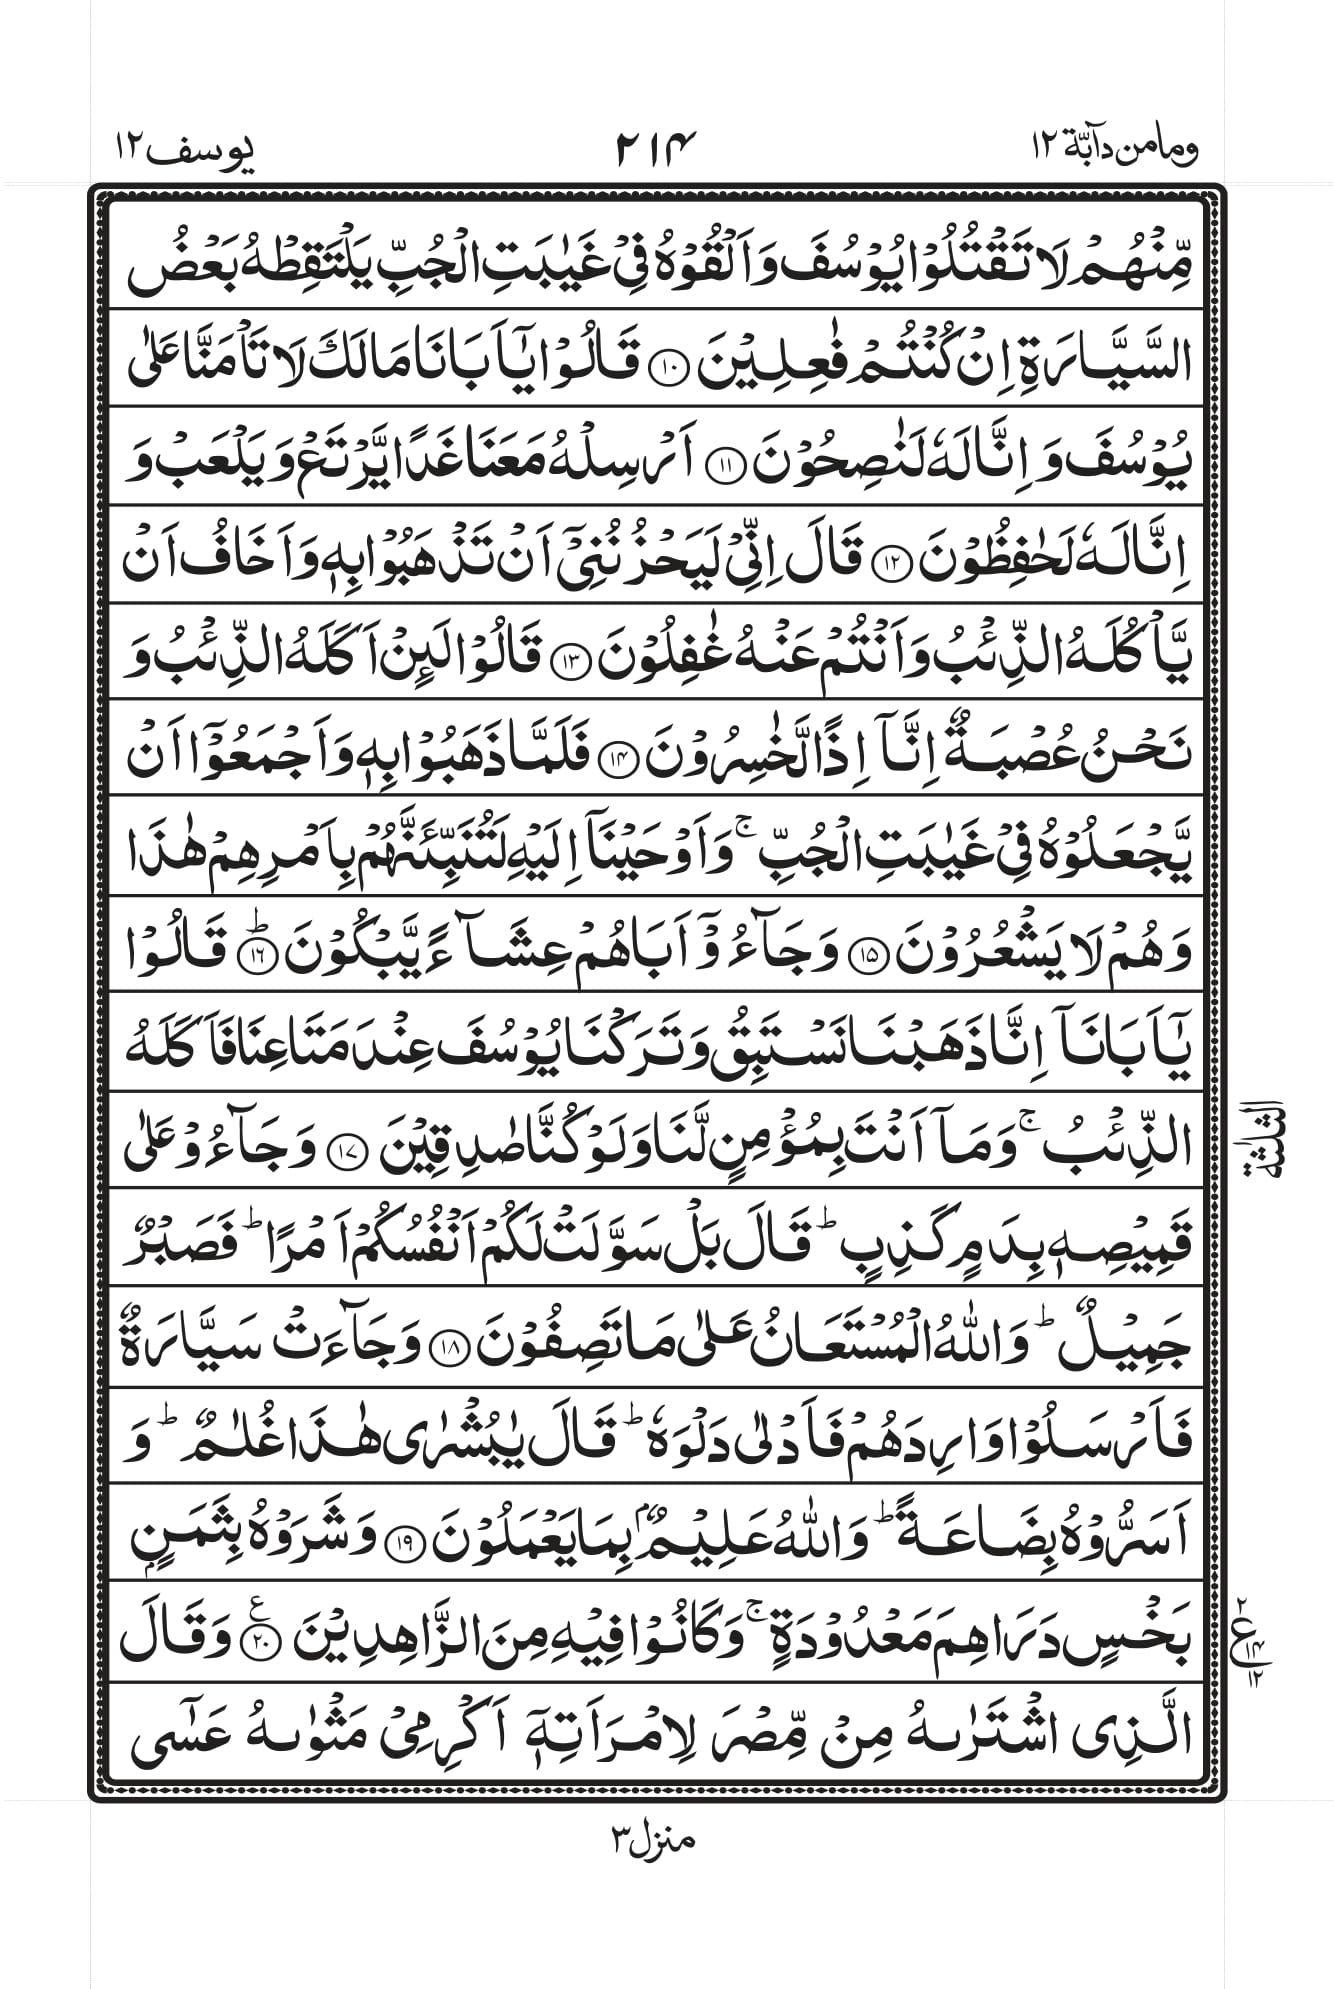 ومامن دآبّة ١٢
٢١۴
يوسف ١٢
مِّنْهُمْ لَا تَقْتُلُوْا يُوْسُفَ وَاَلْقُوْهُ فِيْ غَيٰبَتِ الْجُبِّ يَلْتَقِطْهُ بَعْضُ
السَّيَّارَةِ اِنْ كُنْتُمْ فٰعِلِيْنَ ١٠ قَالُوْا يٰٓاَبَانَا مَا لَكَ لَا تَاْمَنَّا عَلٰى
يُوْسُفَ وَ اِنَّا لَهٗ لَنٰصِحُوْنَ ١١ اَرْسِلْهُ مَعَنَا غَدًا يَّرْتَعْ وَ يَلْعَبْ وَ
اِنَّا لَهٗ لَحٰفِظُوْنَ ١٢ قَالَ اِنِّيْ لَيَحْزُنُنِيْٓ اَنْ تَذْهَبُوْا بِهٖ وَ اَخَافُ اَنْ
يَّاْكُلَهُ الذِّئْبُ وَ اَنْتُمْ عَنْهُ غٰفِلُوْنَ ١٣ قَالُوْا لَئِنْ اَكَلَهُ الذِّئْبُ وَ
نَحْنُ عُصْبَةٌ اِنَّآ اِذًا لَّخٰسِرُوْنَ ١۴ فَلَمَّا ذَهَبُوْا بِهٖ وَ اَجْمَعُوْٓا اَنْ
يَّجْعَلُوْهُ فِيْ غَيٰبَتِ الْجُبِّ ۚ وَ اَوْحَيْنَآ اِلَيْهِ لَتُنَبِّئَنَّهُمْ بِاَمْرِهِمْ هٰذَا
وَ هُمْ لَا يَشْعُرُوْنَ ١۵ وَ جَآءُوْٓ اَبَاهُمْ عِشَآءً يَّبْكُوْنَ ؕ ١۶ قَالُوْا
يٰٓاَبَانَآ اِنَّا ذَهَبْنَا نَسْتَبِقُ وَ تَرَكْنَا يُوْسُفَ عِنْدَ مَتَاعِنَا فَاَكَلَهُ
الذِّئْبُ ۚ وَ مَآ اَنْتَ بِمُؤْمِنٍ لَّنَا وَ لَوْ كُنَّا صٰدِقِيْنَ ١٧ وَ جَآءُوْ عَلٰى
قَمِيْصِهٖ بِدَمٍ كَذِبٍ ؕ قَالَ بَلْ سَوَّلَتْ لَكُمْ اَنْفُسُكُمْ اَمْرًا ؕ فَصَبْرٌ
جَمِيْلٌ ؕ وَ اللّٰهُ الْمُسْتَعَانُ عَلٰى مَا تَصِفُوْنَ ١٨ وَ جَآءَتْ سَيَّارَةٌ
فَاَرْسَلُوْا وَارِدَهُمْ فَاَدْلٰى دَلْوَهٗ ؕ قَالَ يٰبُشْرٰى هٰذَا غُلٰمٌ ؕ وَ
اَسَرُّوْهُ بِضَاعَةً ؕ وَ اللّٰهُ عَلِيْمٌۢ بِمَا يَعْمَلُوْنَ ١٩ وَ شَرَوْهُ بِثَمَنٍۭ
بَخْسٍ دَرَاهِمَ مَعْدُوْدَةٍ ۚ وَ كَانُوْا فِيْهِ مِنَ الزَّاهِدِيْنَ ع ٢٠ وَ قَالَ
الَّذِى اشْتَرٰىهُ مِنْ مِّصْرَ لِامْرَاَتِهٖٓ اَكْرِمِيْ مَثْوٰىهُ عَسٰٓى
الثلثة
٢
ع
١۴
١٢
منزل ٣